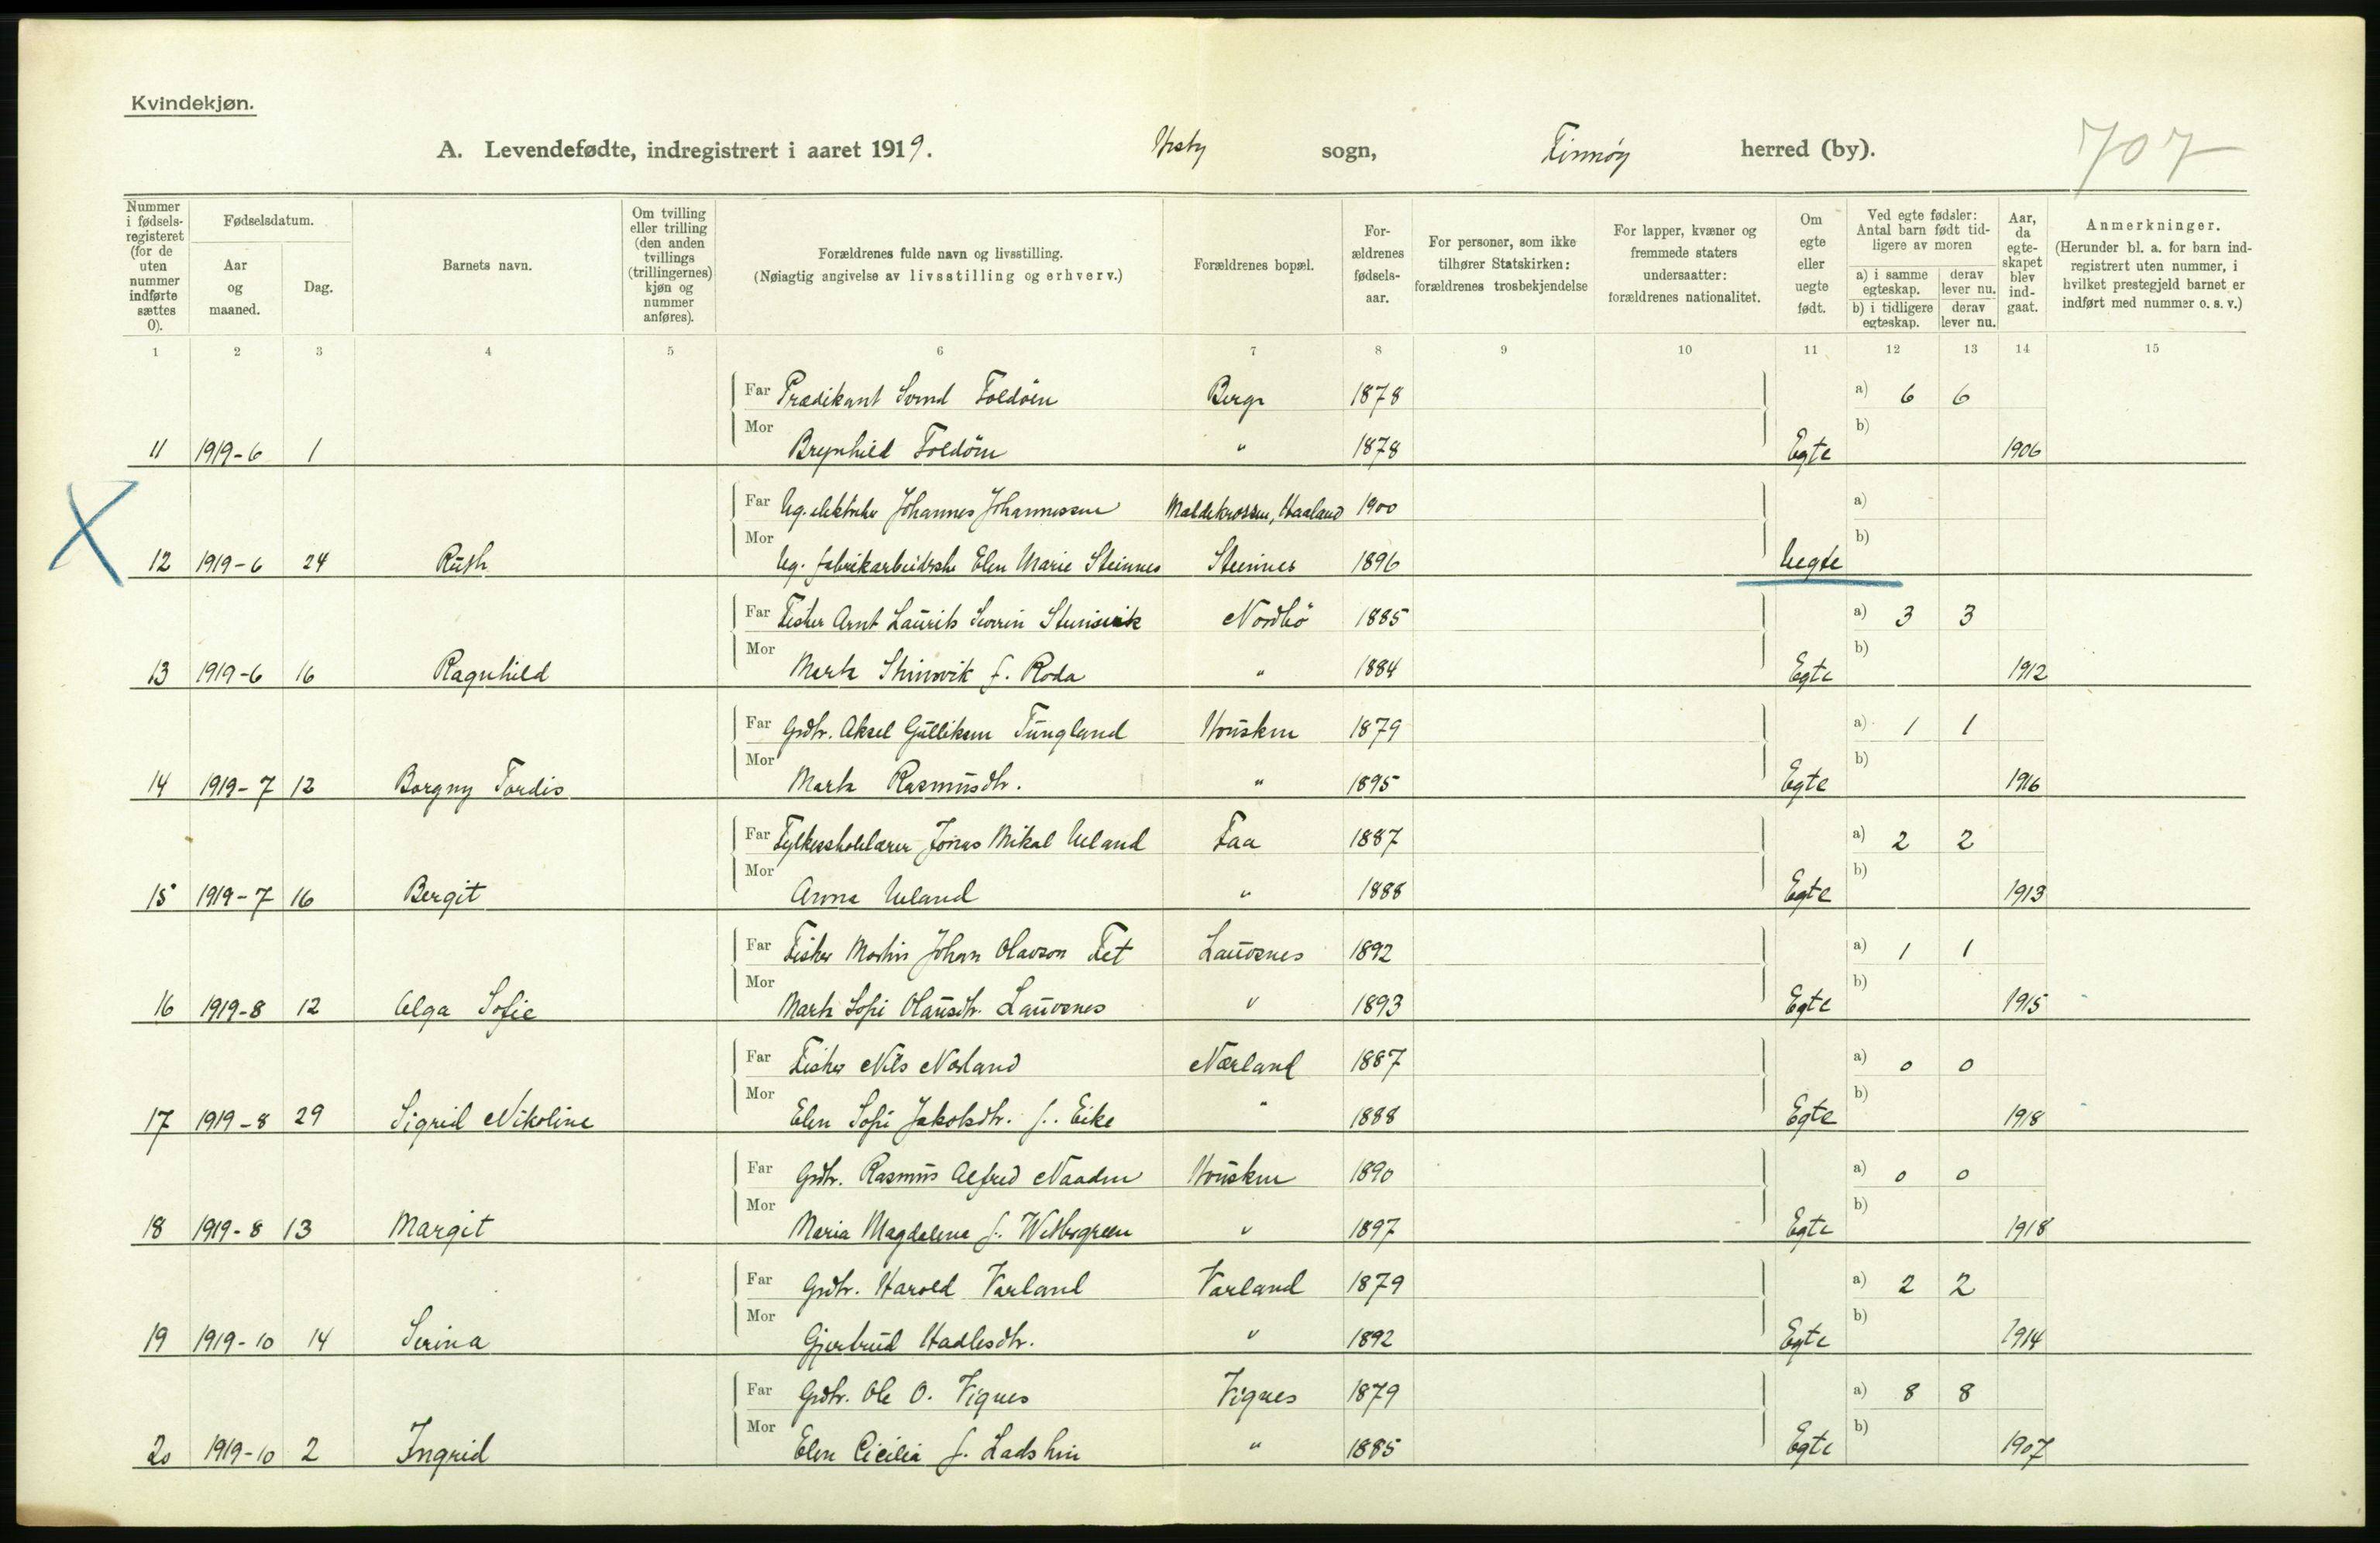 Kvindekjøn.
A. Levendefødte, indregistrert i aaret 1919. Hesby sogn, Finnøy herred (by). 707
Nummer i fødselsregisteret (for de uten nummer indførte sættes 0).
Fødselsdatum.
Aar og maaned.
Dag.
Barnets navn.
Om tvilling eller trilling (den anden tvillings (trillingernes) kjøn og nummer anføres).
Forældrenes fulde navn og livsstilling.
(Nøiagtig angivelse av livsstilling og erhverv.)
Forældrenes bopæl.
Forældrenes fødselsaar.
For personer, som ikke tilhører Statskirken: forældrenes trosbekjendelse
For lapper, kvæner og fremmede staters undersaatter: forældrenes nationalitet.
Om egte eller uegte født.
Ved egte fødsler: Antal barn født tidligere av moren
a) i samme egteskap. derav lever nu.
b) i tidligere egteskap. derav lever nu.
Aar, da egteskapet blev indgaat.
Anmerkninger.
(Herunder bl. a. for barn indregistrert uten nummer, i hvilket prestegjeld barnet er indført med nummer o. s. v.)
1 2 3 4 5 6 7 8 9 10 11 12 13 14 15
Far Prædikant Svend Foldöen Berge 1878 a) 6 6
11 1919-6 1 Mor Brynhild Foldöen " 1878 Egte b) 1906
Far Ug. elektriker Johannes Johannessen Maldekrossen, Haaland 1900 a)
X 12 1919-6 24 Ruth Mor Ug. fabrikarbeiderske Elen Marie Steinnes Steinnes 1896 Uegte b)
Far Fisker Arnt Laurits Severin Steinsvik Nordbö 1885 a) 3 3
13 1919-6 16 Ragnhild Mor Marta Steinsvik f. Roda " 1884 Egte b) 1912
Far Grdbr. Aksel Gulliksen Tungland Housken 1879 a) 1 1
14 1919-7 12 Borgny Tordis Mor Marta Rasmusdtr. " 1895 Egte b) 1916
Far Fylkesskolelærer Jonas Mikal Ueland Faa 1887 a) 2 2
15 1919-7 16 Bergit Mor Anna Ueland " 1888 Egte b) 1913
Far Fisker Martin Johan Olavson Fet Lauvsnes 1892 a) 1 1
16 1919-8 12 Olga Sofie Mor Marta Sofie Olausdtr. Lauvsnes " 1893 Egte b) 1915
Far Fisker Nils Nærland Nærland 1887 a) 0 0
17 1919-8 29 Sigrid Nikoline Mor Elen Sofie Jakobsdtr. f. Eike " 1888 Egte b) 1918
Far Grdbr. Rasmus Alfred Naaden Housken 1890 a) 0 0
18 1919-8 13 Margit Mor Maria Magdalena f. Westergreen " 1897 Egte b) 1918
Far Grdbr. Harold Varland Varland 1879 a) 2 2
19 1919-10 14 Serina Mor Gjertrud Hadlesdtr. " 1892 Egte b) 1914
Far Grdbr. Ole O. Vignes Vignes 1879 a) 8 8
20 1919-10 2 Ingrid Mor Elen Cicilia f. Ladstein " 1885 Egte b) 1907